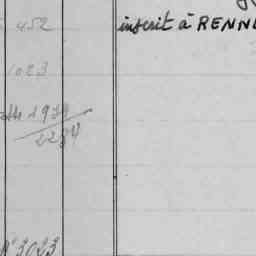 452
inscrit à RENN
1023
1979
2284
N° 3023